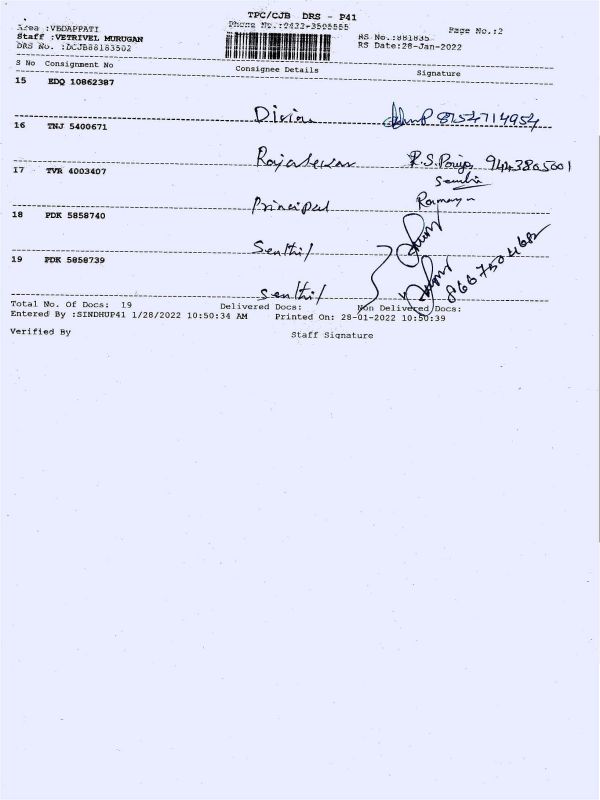 TPC/CJB DRS - P41
Area :VEDAPPATI Phone No.:0422-3505555 Page No.:2
Staff :VETRIVEL MURUGAN RS No.:881835
DRS No. :DCJB88183502 RS Date:28-Jan-2022
S No Consignment No Consignee Details Signature
15 EDQ 10862387
16 TNJ 5400671
Rajasekar R.S. 9443805001
17 TVR 4003407
Principal
18 PDK 5858740
Senthil
19 PDK 5858739
Senthil
Total No. Of Docs: 19 Delivered Docs: Non Delivered Docs:
Entered By :SINDHUP41 1/28/2022 10:50:34 AM Printed On: 28-01-2022 10:50:39
Verified By Staff Signature